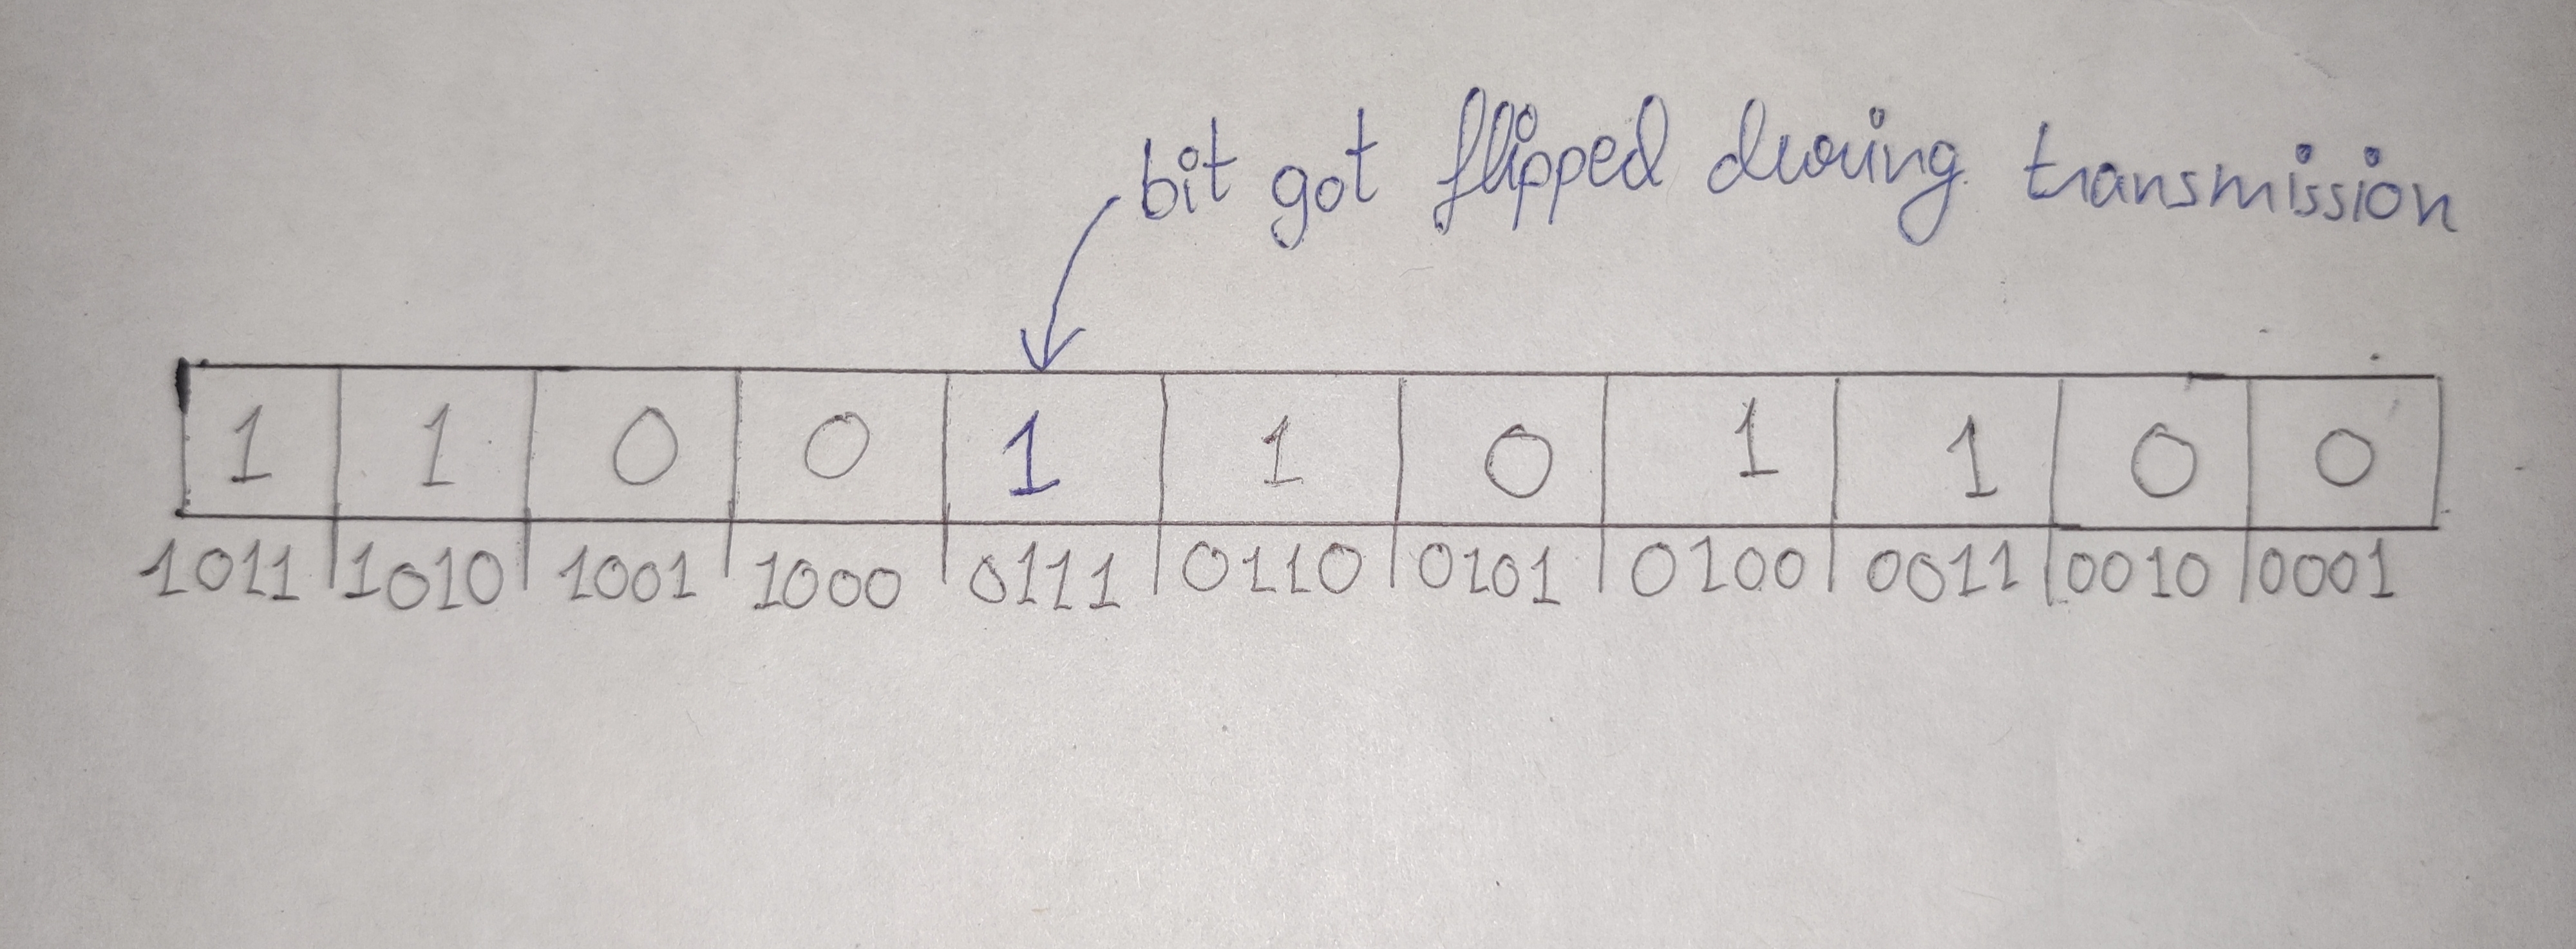 bit got flipped during transmission
1 1 0 0 1 1 0 1 1 0 0
1011 1010 1001 1000 0111 0110 0101 0100 0011 0010 0001